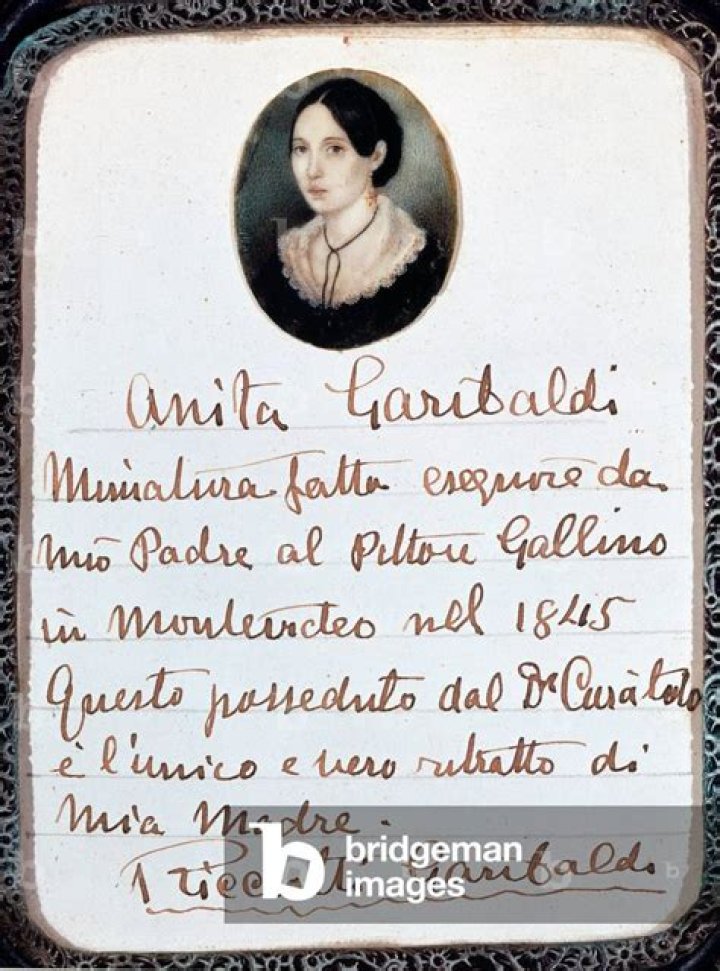 Anita Garibaldi
Miniatura fatta eseguire da
mio Padre al Pittore Gallino
in Montevideo nel 1845
Questo posseduto dal Dr Curàtulo
è l'unico e vero ritratto di
Mia Madre.
Ricciotti Garibaldi
bridgeman
images